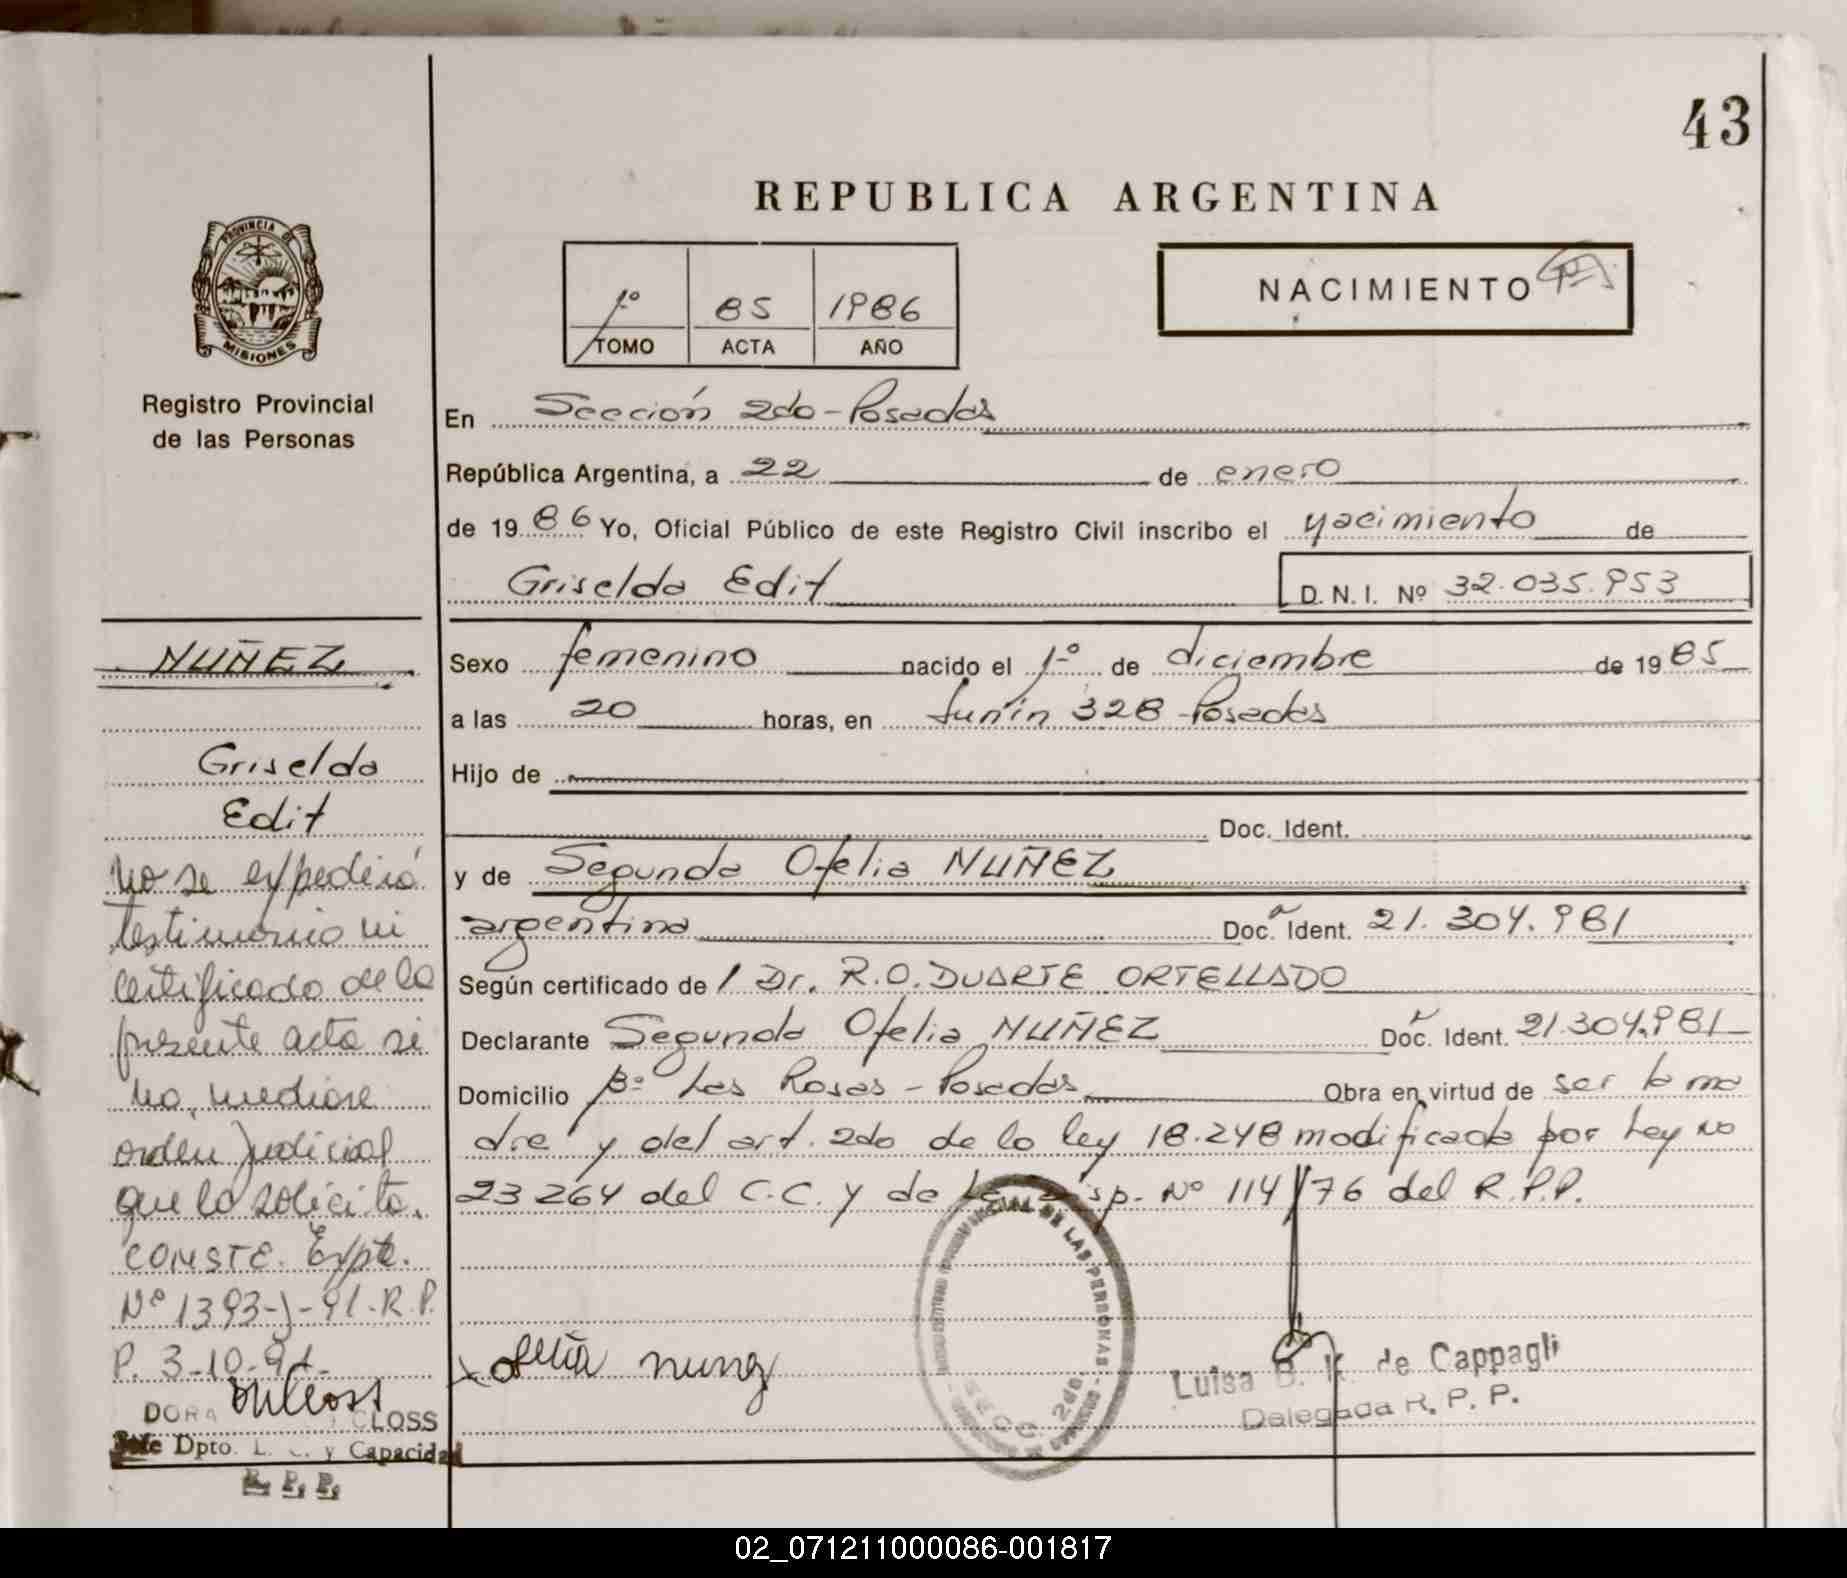 43
REPUBLICA ARGENTINA
PROVINCIA DE
MISIONES
Registro Provincial
de las Personas
1º 85 1986
TOMO ACTA AÑO
NACIMIENTO
En Sección 2da - Posadas
República Argentina, a 22 de enero
de 1986 Yo, Oficial Público de este Registro Civil inscribo el nacimiento de
Griselda Edit D. N. I. Nº 32.035.953
Sexo femenino nacido el 1º de diciembre de 1985
a las 20 horas, en Junín 328 - Posadas
Hijo de
Doc. Ident.
y de Segunda Ofelia NUÑEZ
argentina Doc. Ident. 21.304.981
Según certificado de / Dr. R.O. DUARTE ORTELLADO
Declarante Segunda Ofelia NUÑEZ Doc. Ident. 21.304.981
Domicilio Bº Las Rosas - Posadas Obra en virtud de ser la ma
dre y del art. 2do de la ley 18.248 modificada por Ley No
23264 del C.C. y de La Disp. Nº 114/76 del R.P.P.
NUÑEZ
Griselda
Edit
No se expedirá
testimonio ni
certificado de la
presente acta si
no, mediare
orden judicial
que lo solicite.
CONSTE. Expte.
Nº 1393-J-91-R.P.
P. 3-10-91-
DORA CLOSS
Jefe Dpto. L. C. y Capacidad
R. P. P.
ofelia nuñez
PROVINCIAL DE LAS PERSONAS
SECC. 2da.
Luisa B. K. de Cappagli
Delegada R. P. P.
02_071211000086-001817